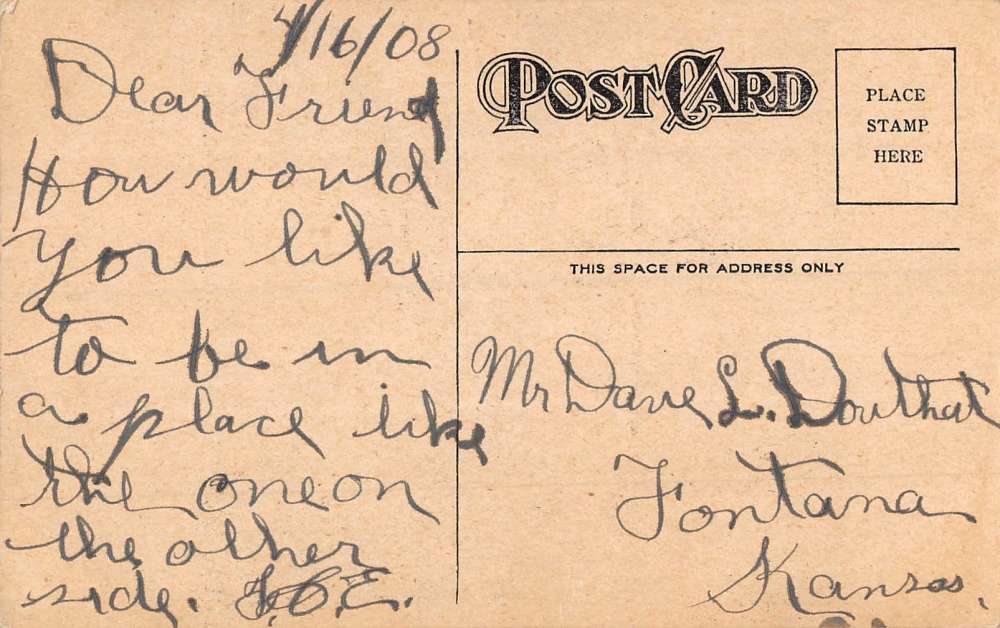 4/16/08
Dear Friend
How would
you like
to be in
a place like
the one on
the other
side.
POST CARD
PLACE
STAMP
HERE
THIS SPACE FOR ADDRESS ONLY
Mr Dave L. Douthat
Fontana
Kansas.